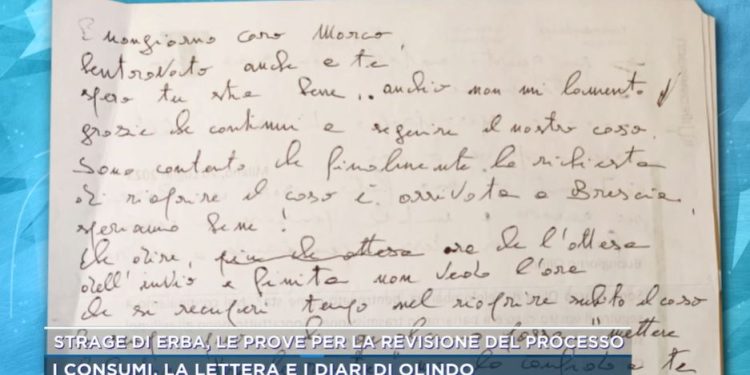 Buongiorno caro Marco,
Bentrovato anche a te
spero tu stia bene.. anch'io non mi lamento
grazie che continui a seguire il nostro caso.
Sono contento che finalmente la richiesta
di riaprire il caso è arrivata a Brescia,
speriamo bene!
Che dire, ora che l'attesa
dell'invio è finita non vedo l'ora
che si recuperi tempo nel riaprire subito il caso
mettere
a te
STRAGE DI ERBA, LE PROVE PER LA REVISIONE DEL PROCESSO
I CONSUMI, LA LETTERA E I DIARI DI OLINDO